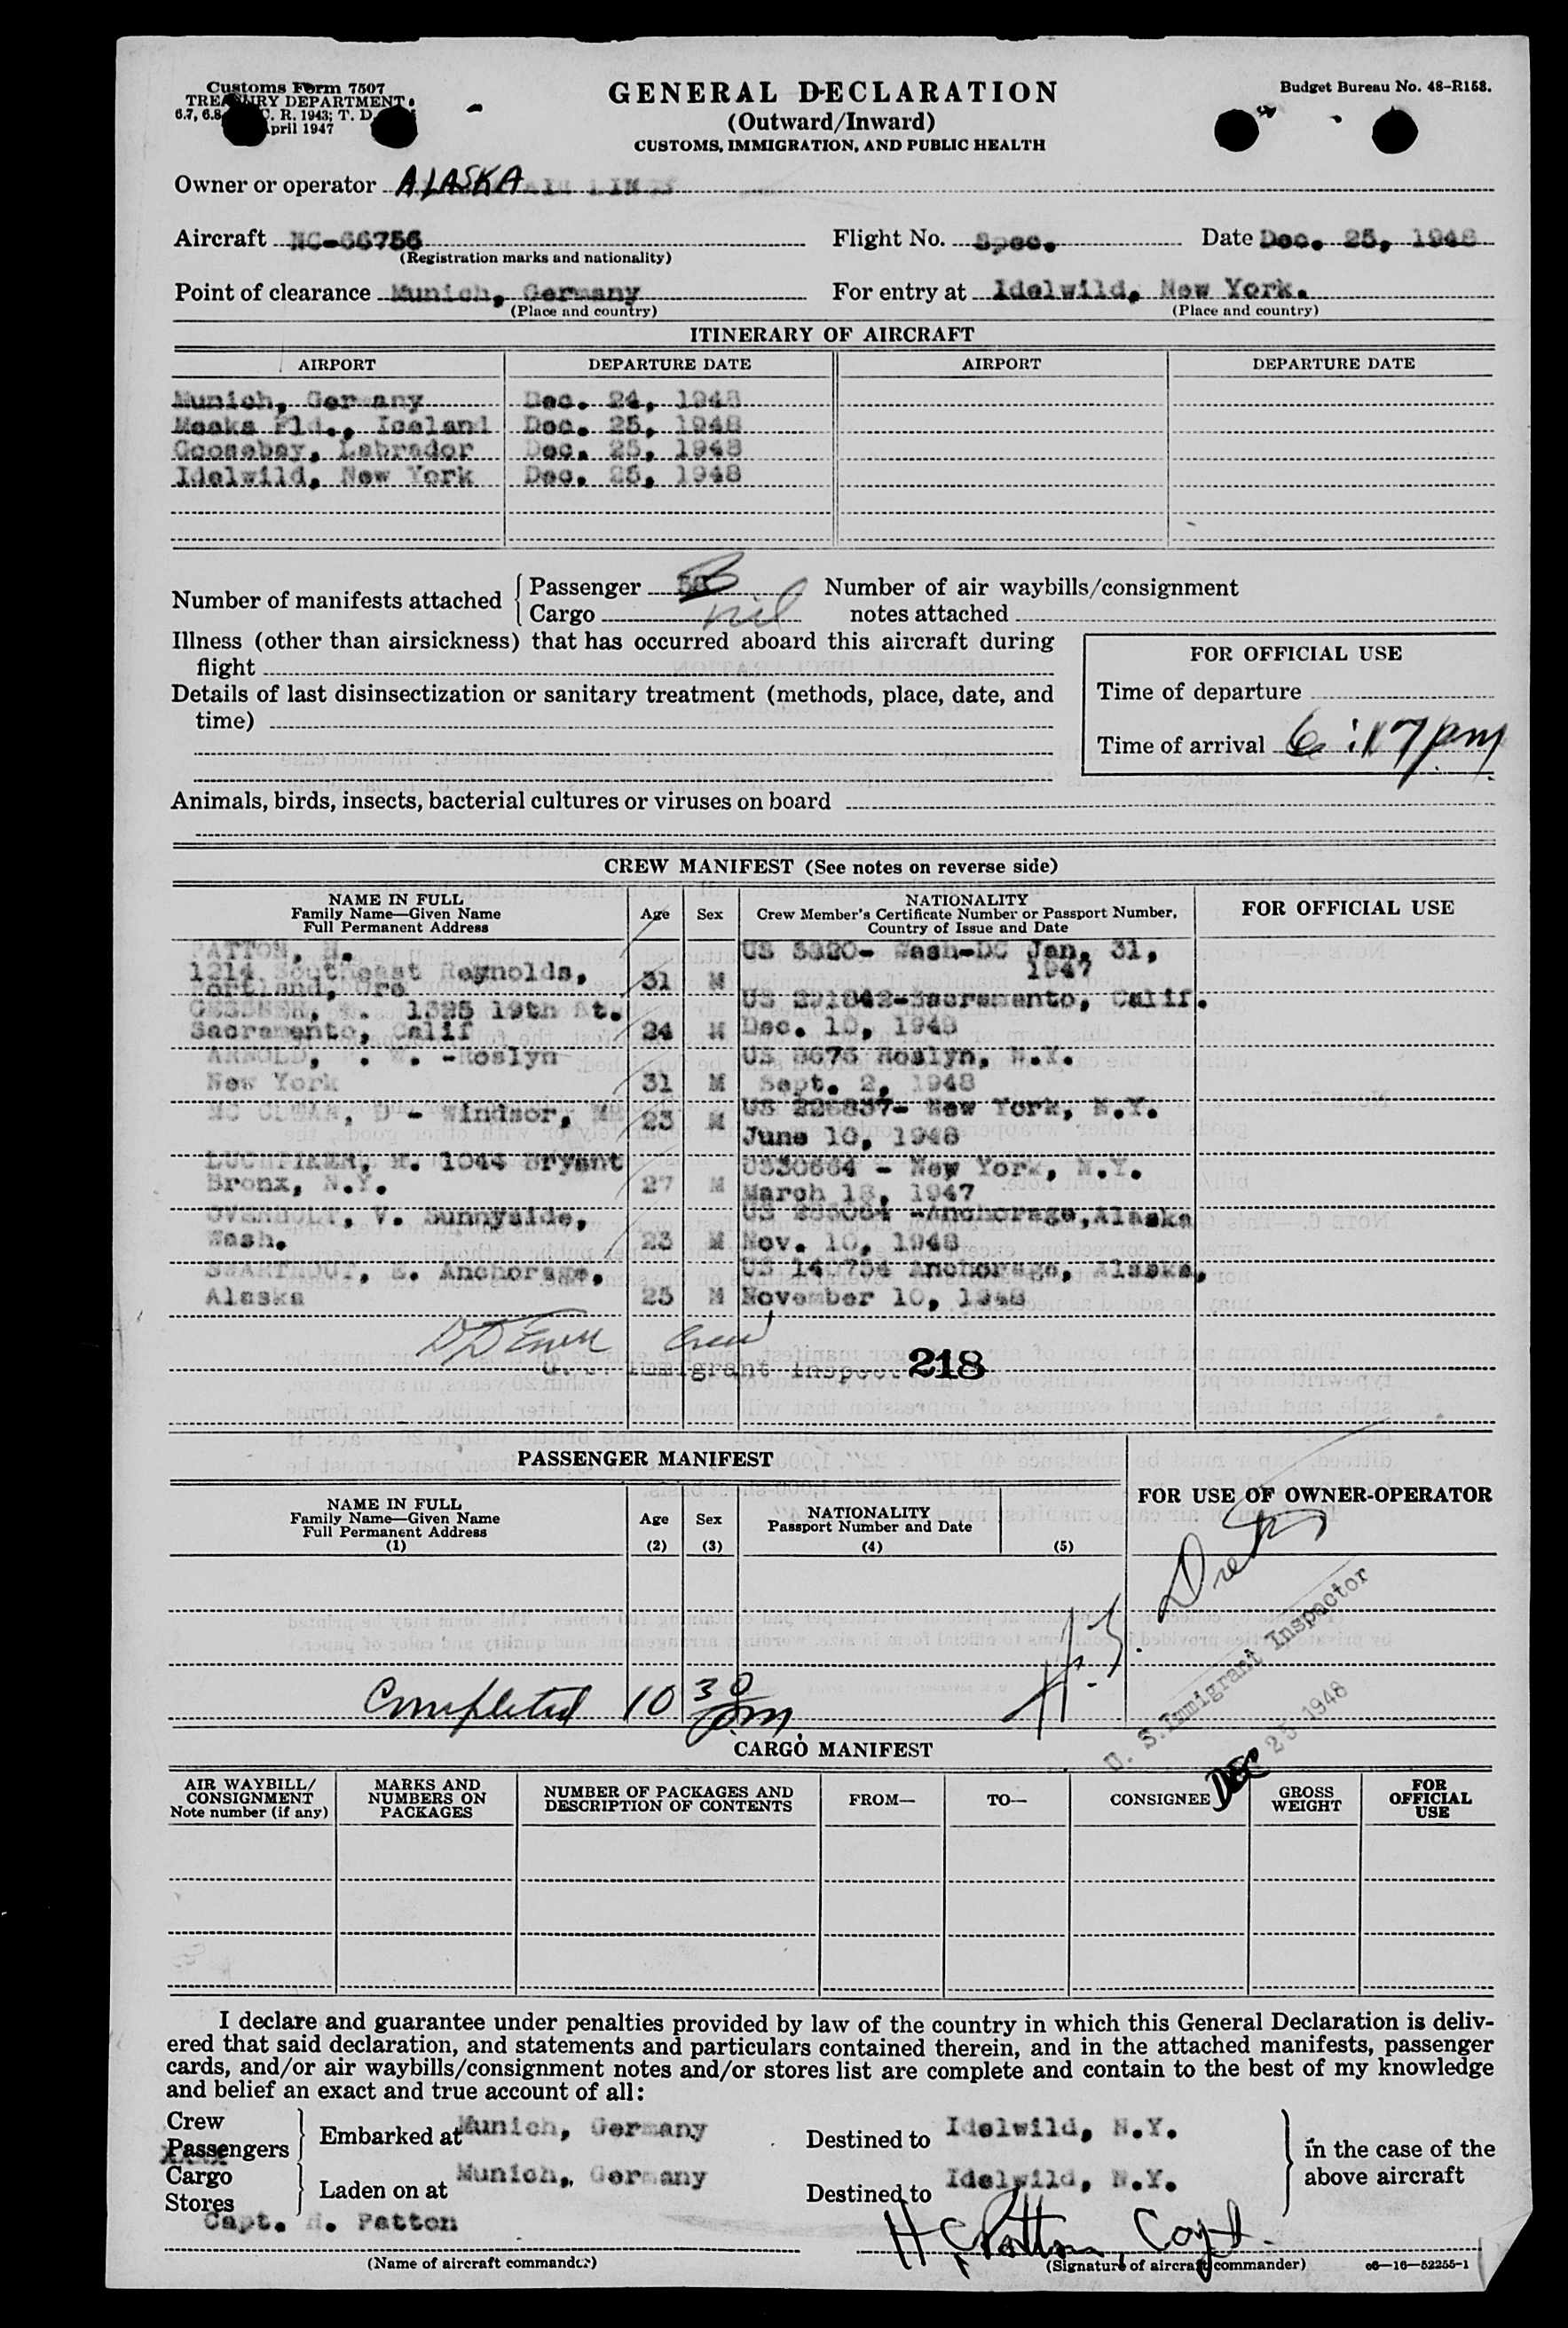 Customs Form 7507
TREASURY DEPARTMENT
April 1947
GENERAL DECLARATION
(Outward/Inward)
CUSTOMS, IMMIGRATION, AND PUBLIC HEALTH
Budget Bureau No. 48-R158.
Owner or operator ALASKA AIR LINES
Aircraft NC-66756
(Registration marks and nationality)
Flight No. Spec.
Date Dec. 25, 1948
Point of clearance Munich, Germany
(Place and country)
For entry at Idelwild, New York.
(Place and country)
ITINERARY OF AIRCRAFT
AIRPORT DEPARTURE DATE AIRPORT DEPARTURE DATE
Munich, Germany Dec. 24, 1948
Meeks Fld., Iceland Dec. 25, 1948
Goosebay, Labrador Dec. 25, 1948
Idelwild, New York Dec. 25, 1948
Number of manifests attached
Passenger
Cargo nil
Number of air waybills/consignment
notes attached
Illness (other than airsickness) that has occurred aboard this aircraft during
flight
Details of last disinsectization or sanitary treatment (methods, place, date, and
time)
FOR OFFICIAL USE
Time of departure
Time of arrival 6:17 pm
Animals, birds, insects, bacterial cultures or viruses on board
CREW MANIFEST (See notes on reverse side)
NAME IN FULL
Family Name—Given Name
Full Permanent Address
Age
Sex
NATIONALITY
Crew Member's Certificate Number or Passport Number,
Country of Issue and Date
FOR OFFICIAL USE
PATTON, H. US Wash-DC Jan. 31,
1214 Southeast Reynolds, 31 M 1947
Portland, Ore
1325 19th St. Sacramento, Calif.
Sacramento, Calif 24 M Dec. 10, 1948
ARNOLD, -Roslyn US Roslyn, N.Y.
New York 31 M Sept. 2, 1948
D - Windsor, 23 M US New York, N.Y.
June 10, 1948
H. 1044 Bryant US30664 - New York, N.Y.
Bronx, N.Y. 27 M March 18, 1947
OVERHOLT, V. Sunnyside, US -Anchorage, Alaska
Wash. 23 M Nov. 10, 1948
SWARTHOUT, Anchorage, US Anchorage, Alaska,
Alaska 25 M November 10, 1948
Immigrant Inspec. 218
PASSENGER MANIFEST
NAME IN FULL
Family Name—Given Name
Full Permanent Address
(1)
Age
(2)
Sex
(3)
NATIONALITY
Passport Number and Date
(4)
(5)
FOR USE OF OWNER-OPERATOR
U. S. Immigrant Inspector
DEC 25 1948
Completed 10 30 pm.
CARGO MANIFEST
AIR WAYBILL/
CONSIGNMENT
Note number (if any)
MARKS AND
NUMBERS ON
PACKAGES
NUMBER OF PACKAGES AND
DESCRIPTION OF CONTENTS
FROM—
TO—
CONSIGNEE
GROSS
WEIGHT
FOR
OFFICIAL
USE
I declare and guarantee under penalties provided by law of the country in which this General Declaration is deliv-
ered that said declaration, and statements and particulars contained therein, and in the attached manifests, passenger
cards, and/or air waybills/consignment notes and/or stores list are complete and contain to the best of my knowledge
and belief an exact and true account of all:
Crew
Passengers
Embarked at Munich, Germany
Destined to Idelwild, N.Y.
Cargo
Stores
Laden on at Munich, Germany
Destined to Idelwild, N.Y.
in the case of the
above aircraft
Capt. H. Patton
(Name of aircraft commander)
H Patton, Capt.
(Signature of aircraft commander)
16—52255-1